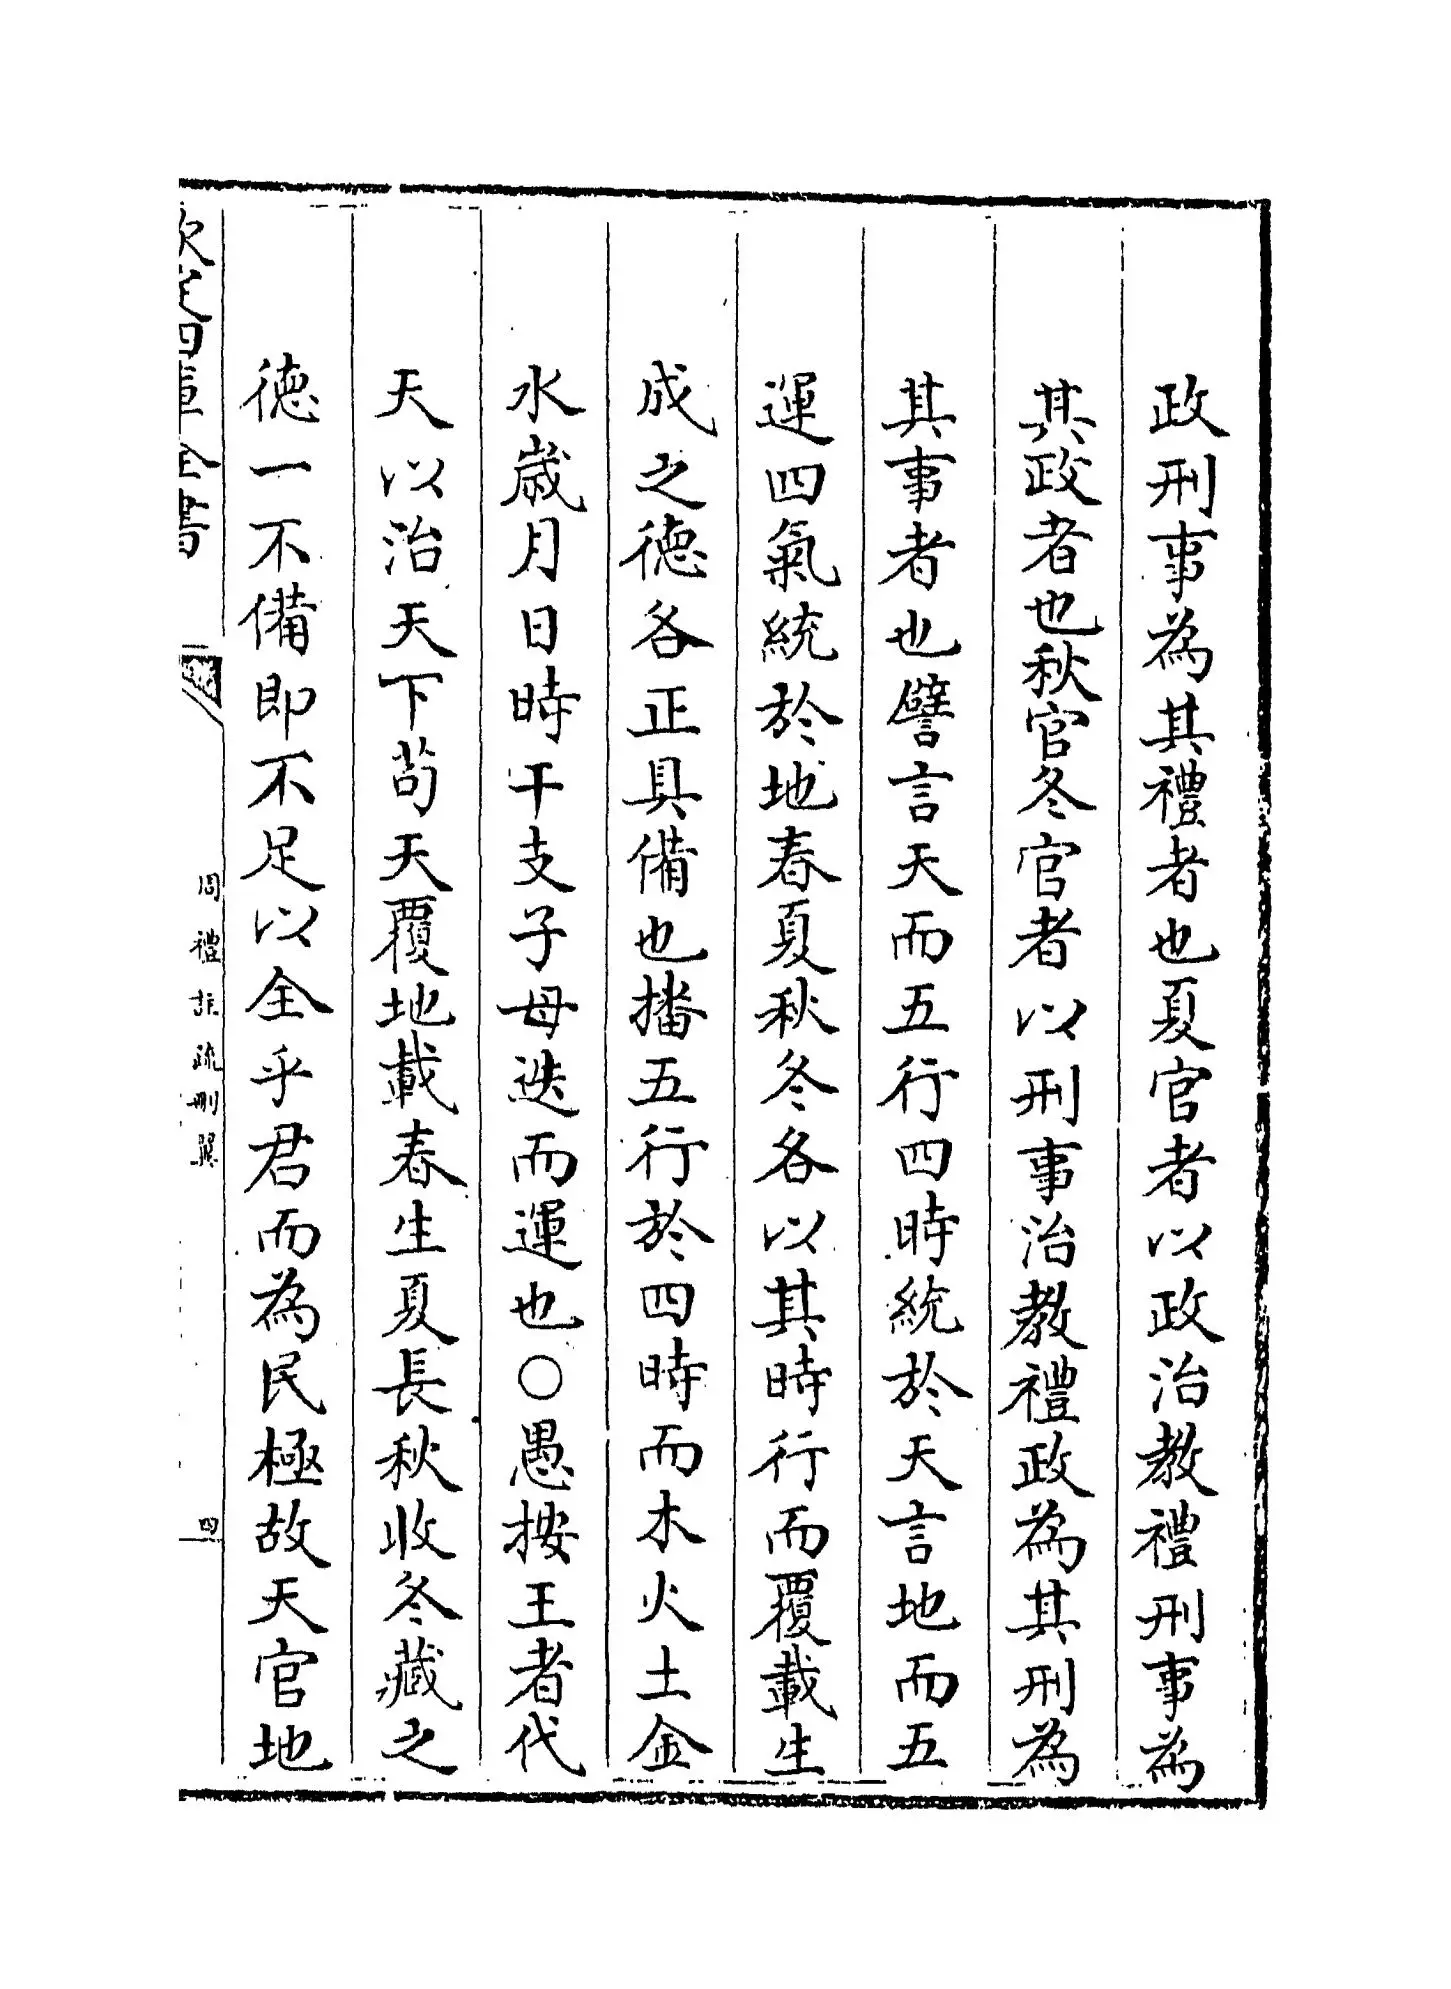 政刑事為其禮者也夏官者以政治教禮刑事為
其政者也秋官冬官者以刑事治教禮政為其刑為
其事者也譬言天而五行四時統於天言地而五
運四氣統於地春夏秋冬各以其時行而覆載生
成之德各正具備也播五行於四時而木火土金
水歳月日時干支子母迭而運也○愚按王者代
天以治天下苟天覆地載春生夏長秋收冬藏之
德一不備即不足以全乎君而為民極故天官地
欽定四庫全書
周禮註疏刪翼
四